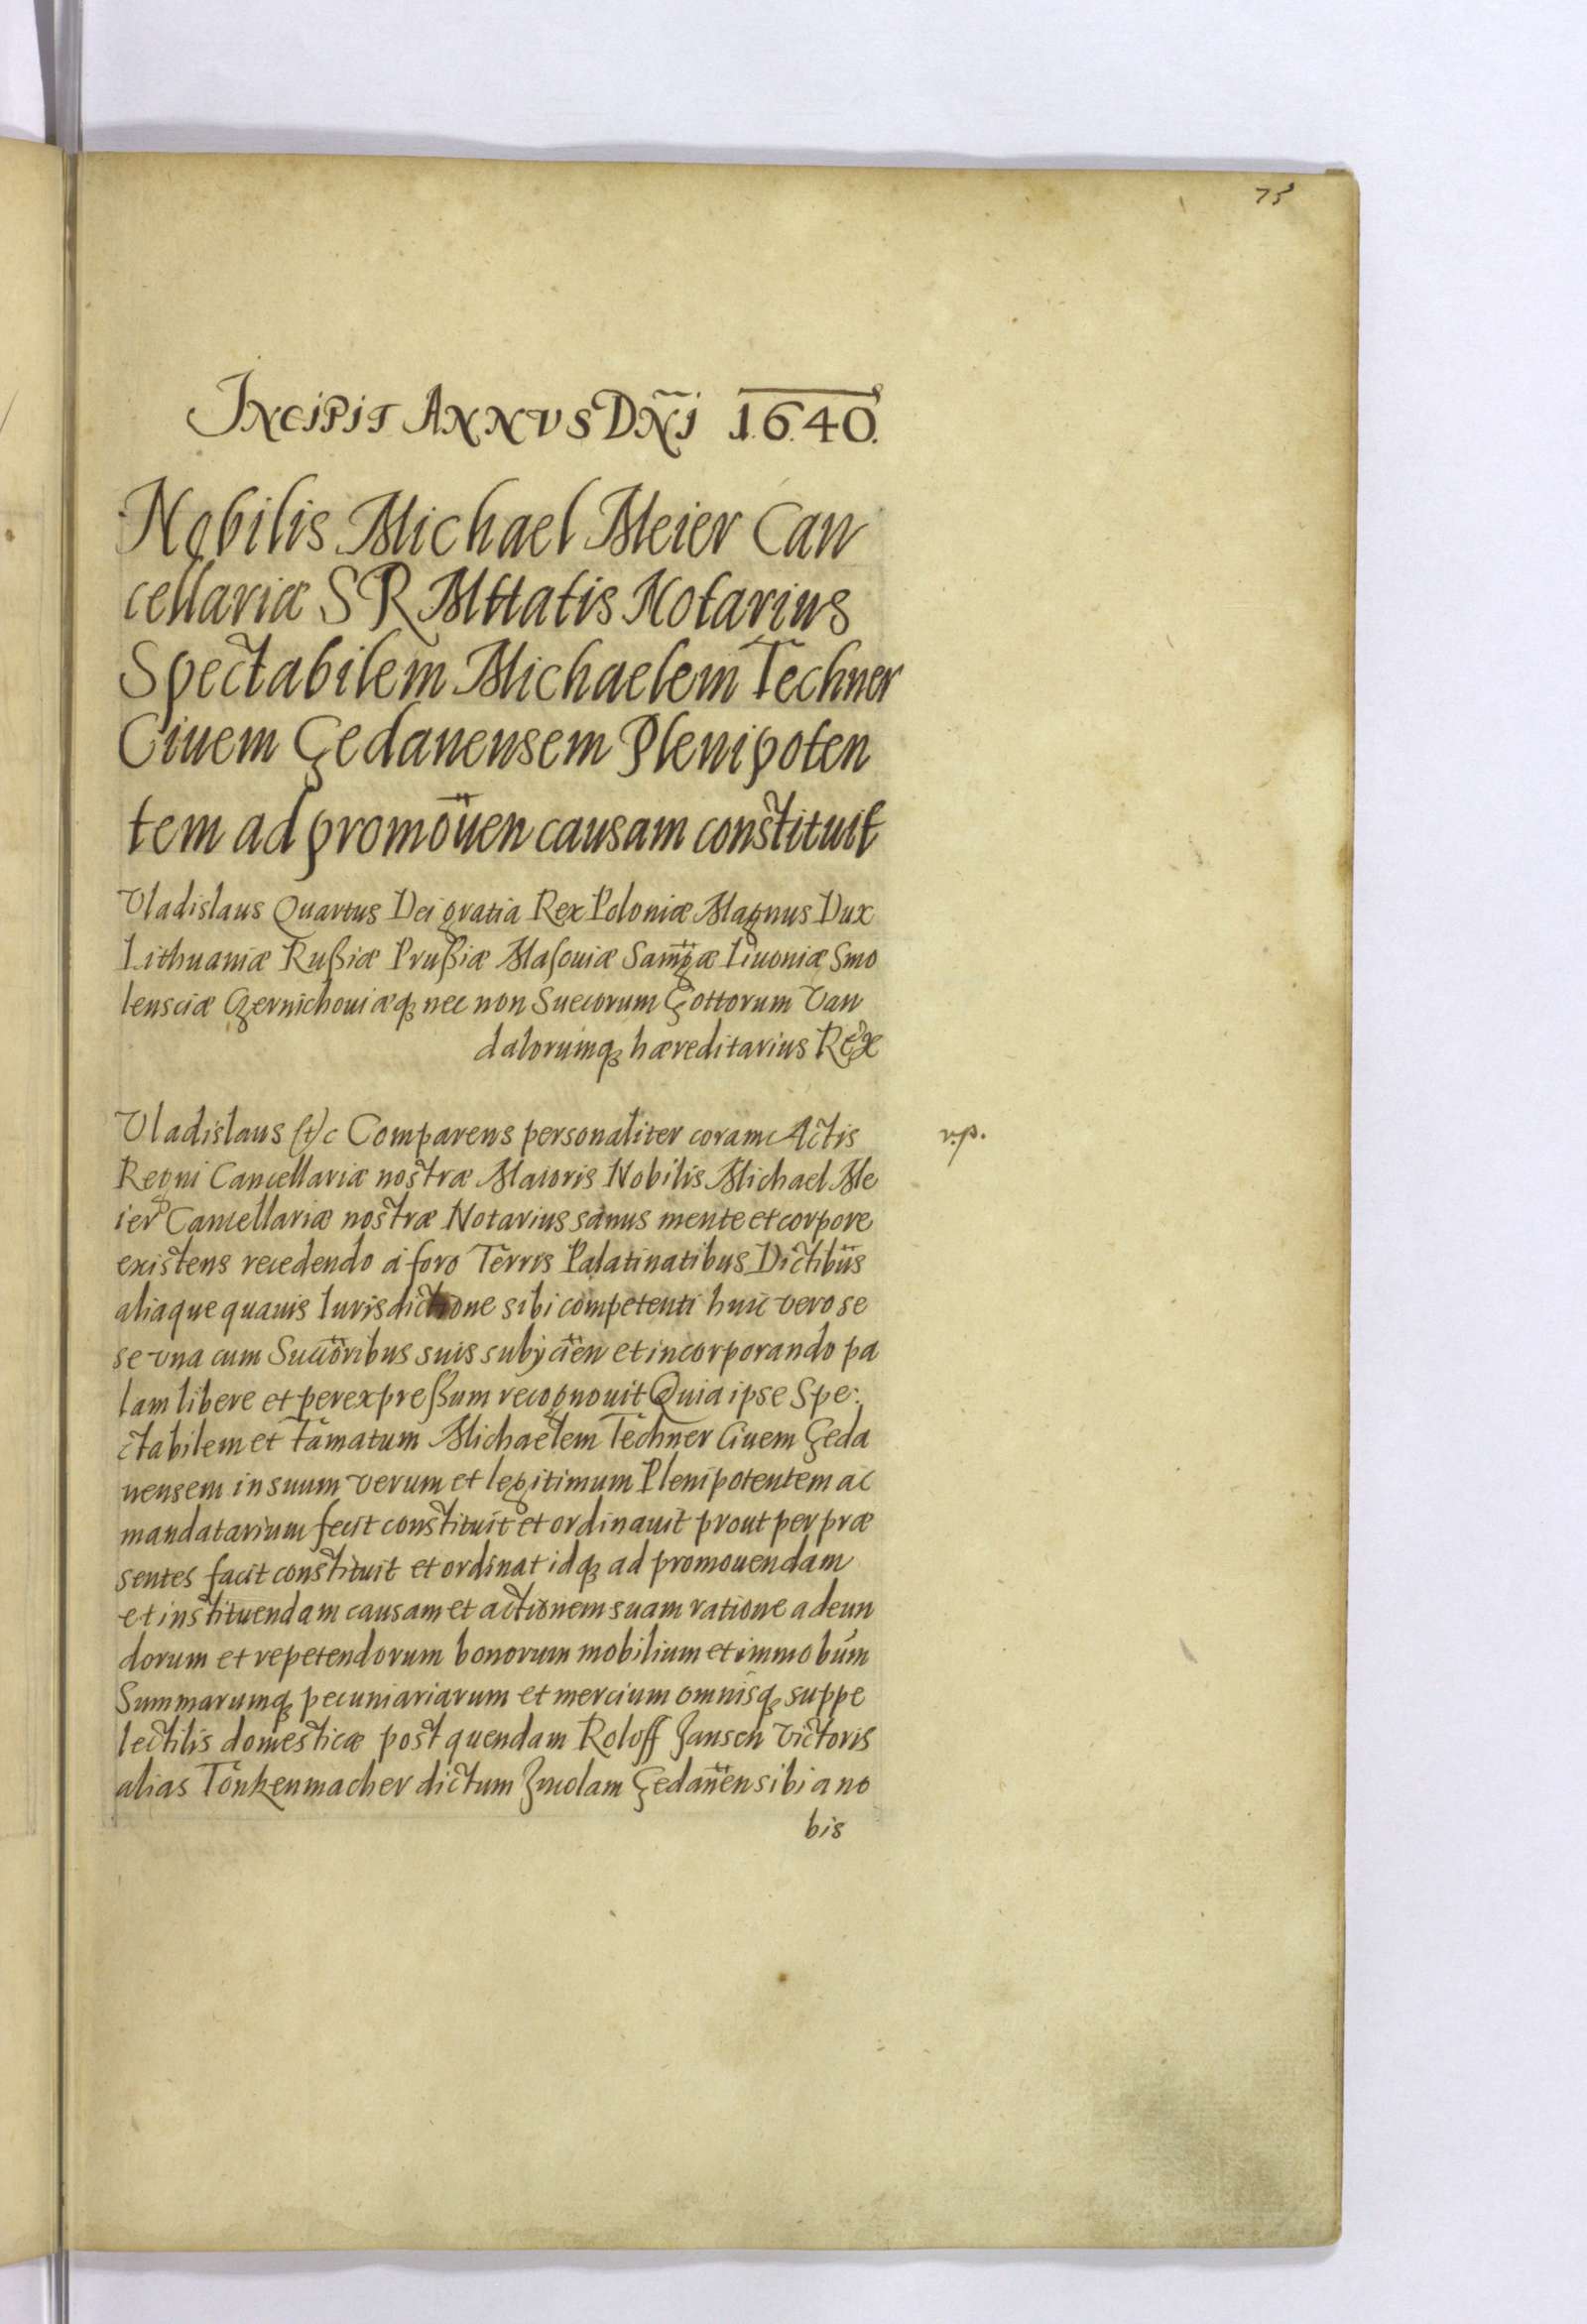 75
Incipit Annus Dñi 1640.
Nobilis Michael Meier Can
cellariæ S R Mttatis Notarius
Spectabilem Michaelem Techner
Ciuem Gedanensem Plenipoten
tem ad promoüen causam constituit
Vladislaus Quartus Dei gratia Rex Poloniæ Magnus Dux
Lithuaniæ Rußiæ Prußiæ Masouiæ Samgæ Liuoniæ Smo
lensciæ Czernichouiæq nec non Suecorum Gottorum Van
dalorumq hæreditarius Rex
Vladislaus etc Comparens personaliter coram Actis v.p.
Regni Cancellariæ nostræ Maioris Nobilis Michael Me
ier Cancellariæ nostræ Notarius sanus mente et corpore
existens recedendo a foro Terris Palatinatibus Dictibüs
aliaque quauis Iurisdictione sibi competenti huic vero se
se vna cum Succöribus suis subijcien et incorporando pa
lam libere et per expreßum recognouit Quia ipse Spe:
ctabilem et Famatum Michaelem Techner Ciuem Geda
nensem in suum verum et legitimum Plenipotentem ac
mandatarium fecit constituit et ordinauit prout per præ
sentes facit constituit et ordinat idq ad promouendam
et instituendam causam et actionem suam ratione adeun
dorum et repetendorum bonorum mobilium et immobum
Summarumq pecuniariarum et mercium omnisq suppe
lectilis domesticæ post quendam Roloff Jansen Victoris
alias Tönkenmacher dictum Incolam Gedanen sibi a no
bis